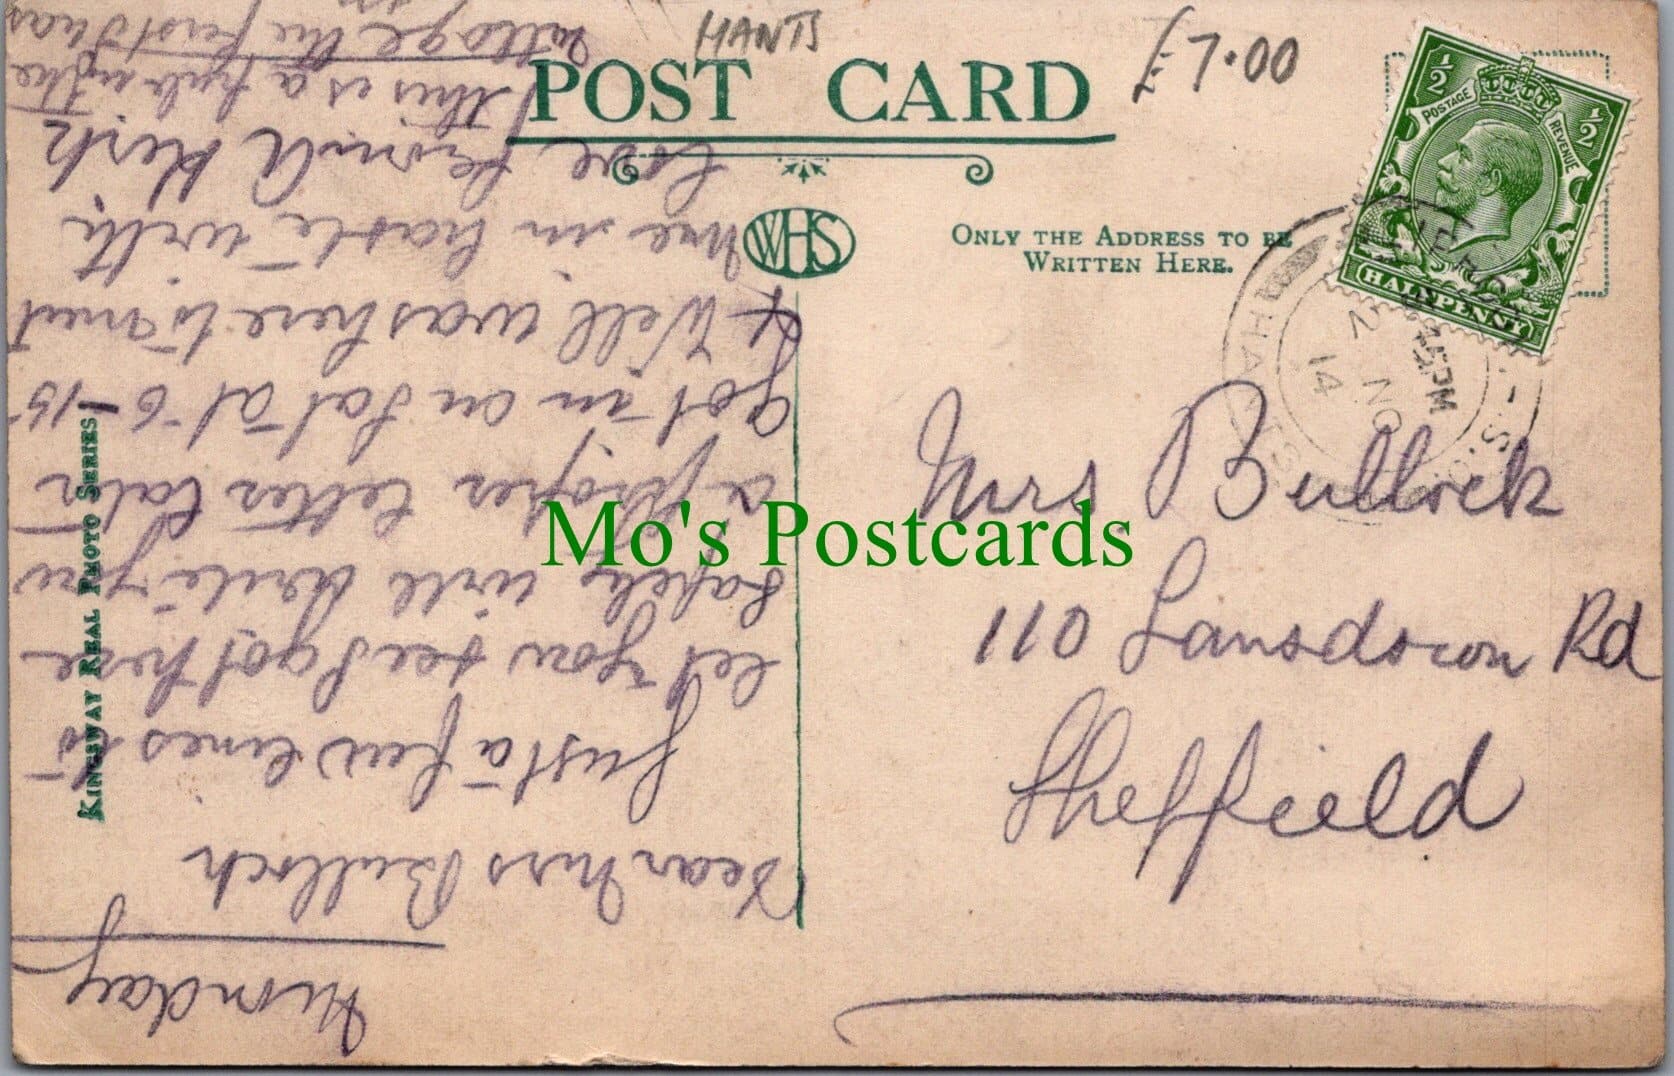 HANTS
£7.00
POST CARD
WHS
ONLY THE ADDRESS TO BE
WRITTEN HERE.
½ ½
POSTAGE REVENUE
HALFPENNY
NO
14
HANTS
Mrs Bullock
110 Lansdown Rd
Sheffield
KINGSWAY REAL PHOTO SERIES
Mo's Postcards
Monday
Dear Mrs Bullock
Just a few lines to
let you see I got here
safely will write you
a proper letter later
got in on Sat at 6-15
& Will was here to meet
me in haste with
love
this is a pub in the
village the first I was